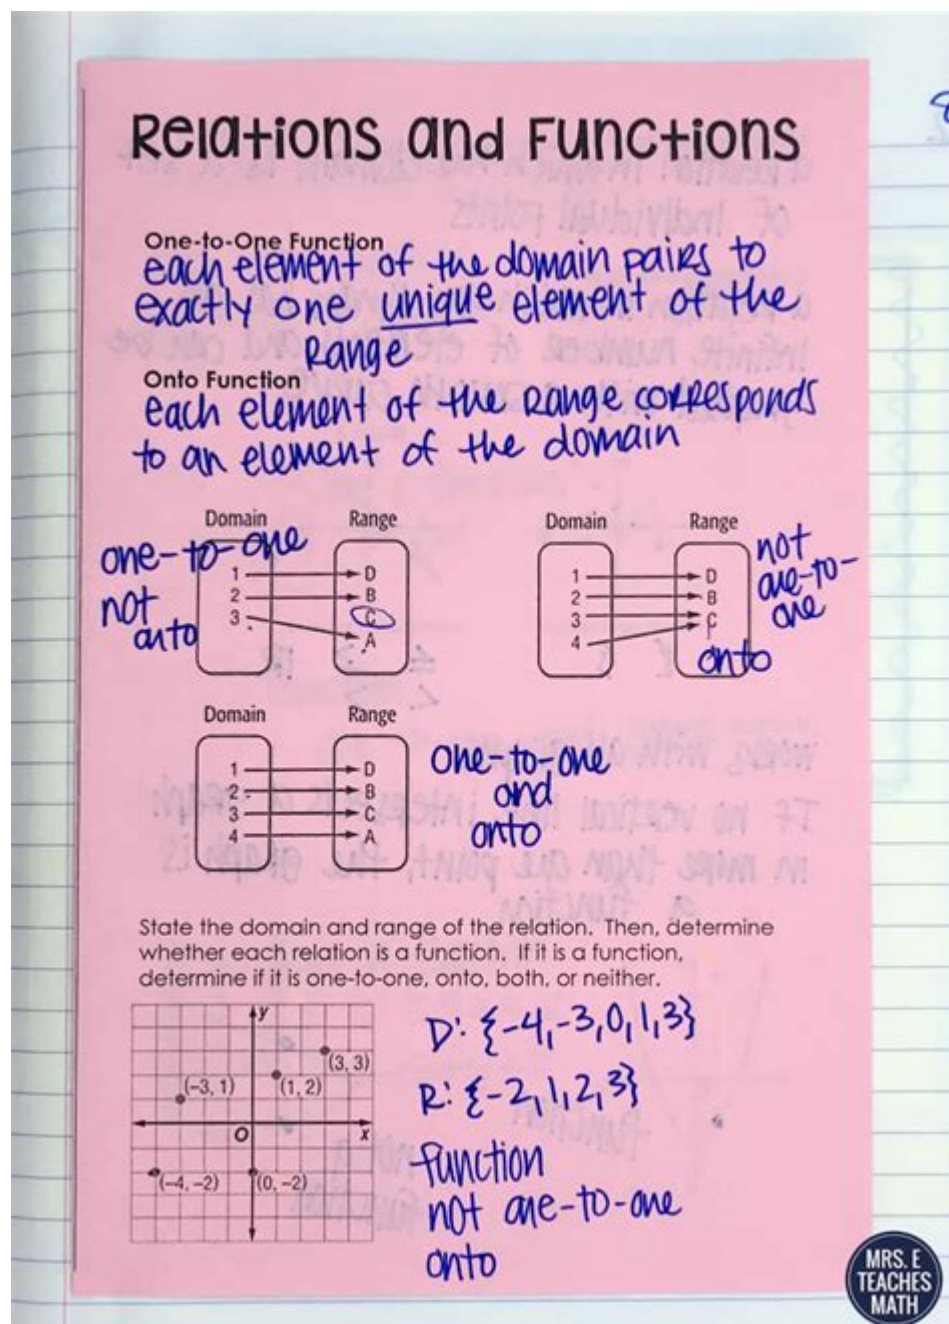 Relations and Functions
One-to-One Function
each element of the domain pairs to
exactly one unique element of the
Range
Onto Function
each element of the Range corresponds
to an element of the domain
Domain Range
one-to-one
not
onto
1 D
2 B
3 C
A
Domain Range
1 D
2 B
3 C
4
not
one-to-
one
onto
Domain Range
1 D
2 B
3 C
4 A
one-to-one
and
onto
State the domain and range of the relation. Then, determine
whether each relation is a function. If it is a function,
determine if it is one-to-one, onto, both, or neither.
y
(3, 3)
(-3, 1) (1, 2)
O x
(-4, -2) (0, -2)
D: {-4, -3, 0, 1, 3}
R: {-2, 1, 2, 3}
function
not one-to-one
onto
MRS. E
TEACHES
MATH